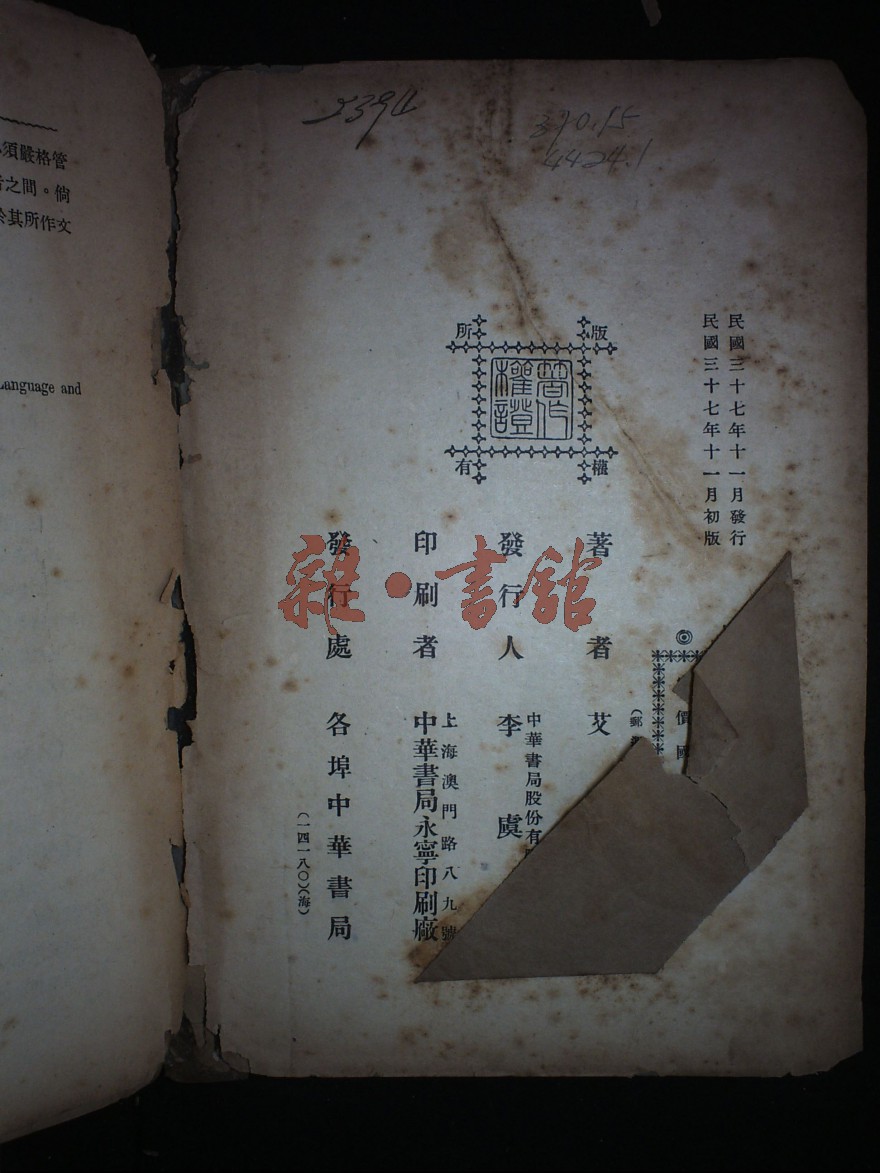 5394
390.15
4424.1
民國三十七年十一月發行
民國三十七年十一月初版
版權所有
著作權證
價國
(郵
著者 艾
中華書局股份有
發行人 李虞
上海澳門路八九號
印刷者 中華書局永寧印刷廠
發行處 各埠中華書局
(一四一八〇)(海)
雜·書館
須嚴格管
之間。倘
其所作文
Language and